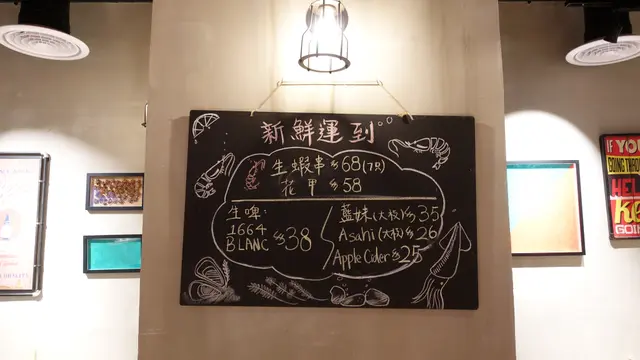 新鮮運到
生蝦串 $68(7只)
花甲 $58
生啤:
1664
BLANC $38
藍妹(大枝) $35
Asahi (大枝) $26
Apple Cider $25
IF YOU
GOING THRO
HEL
KE
GOIN